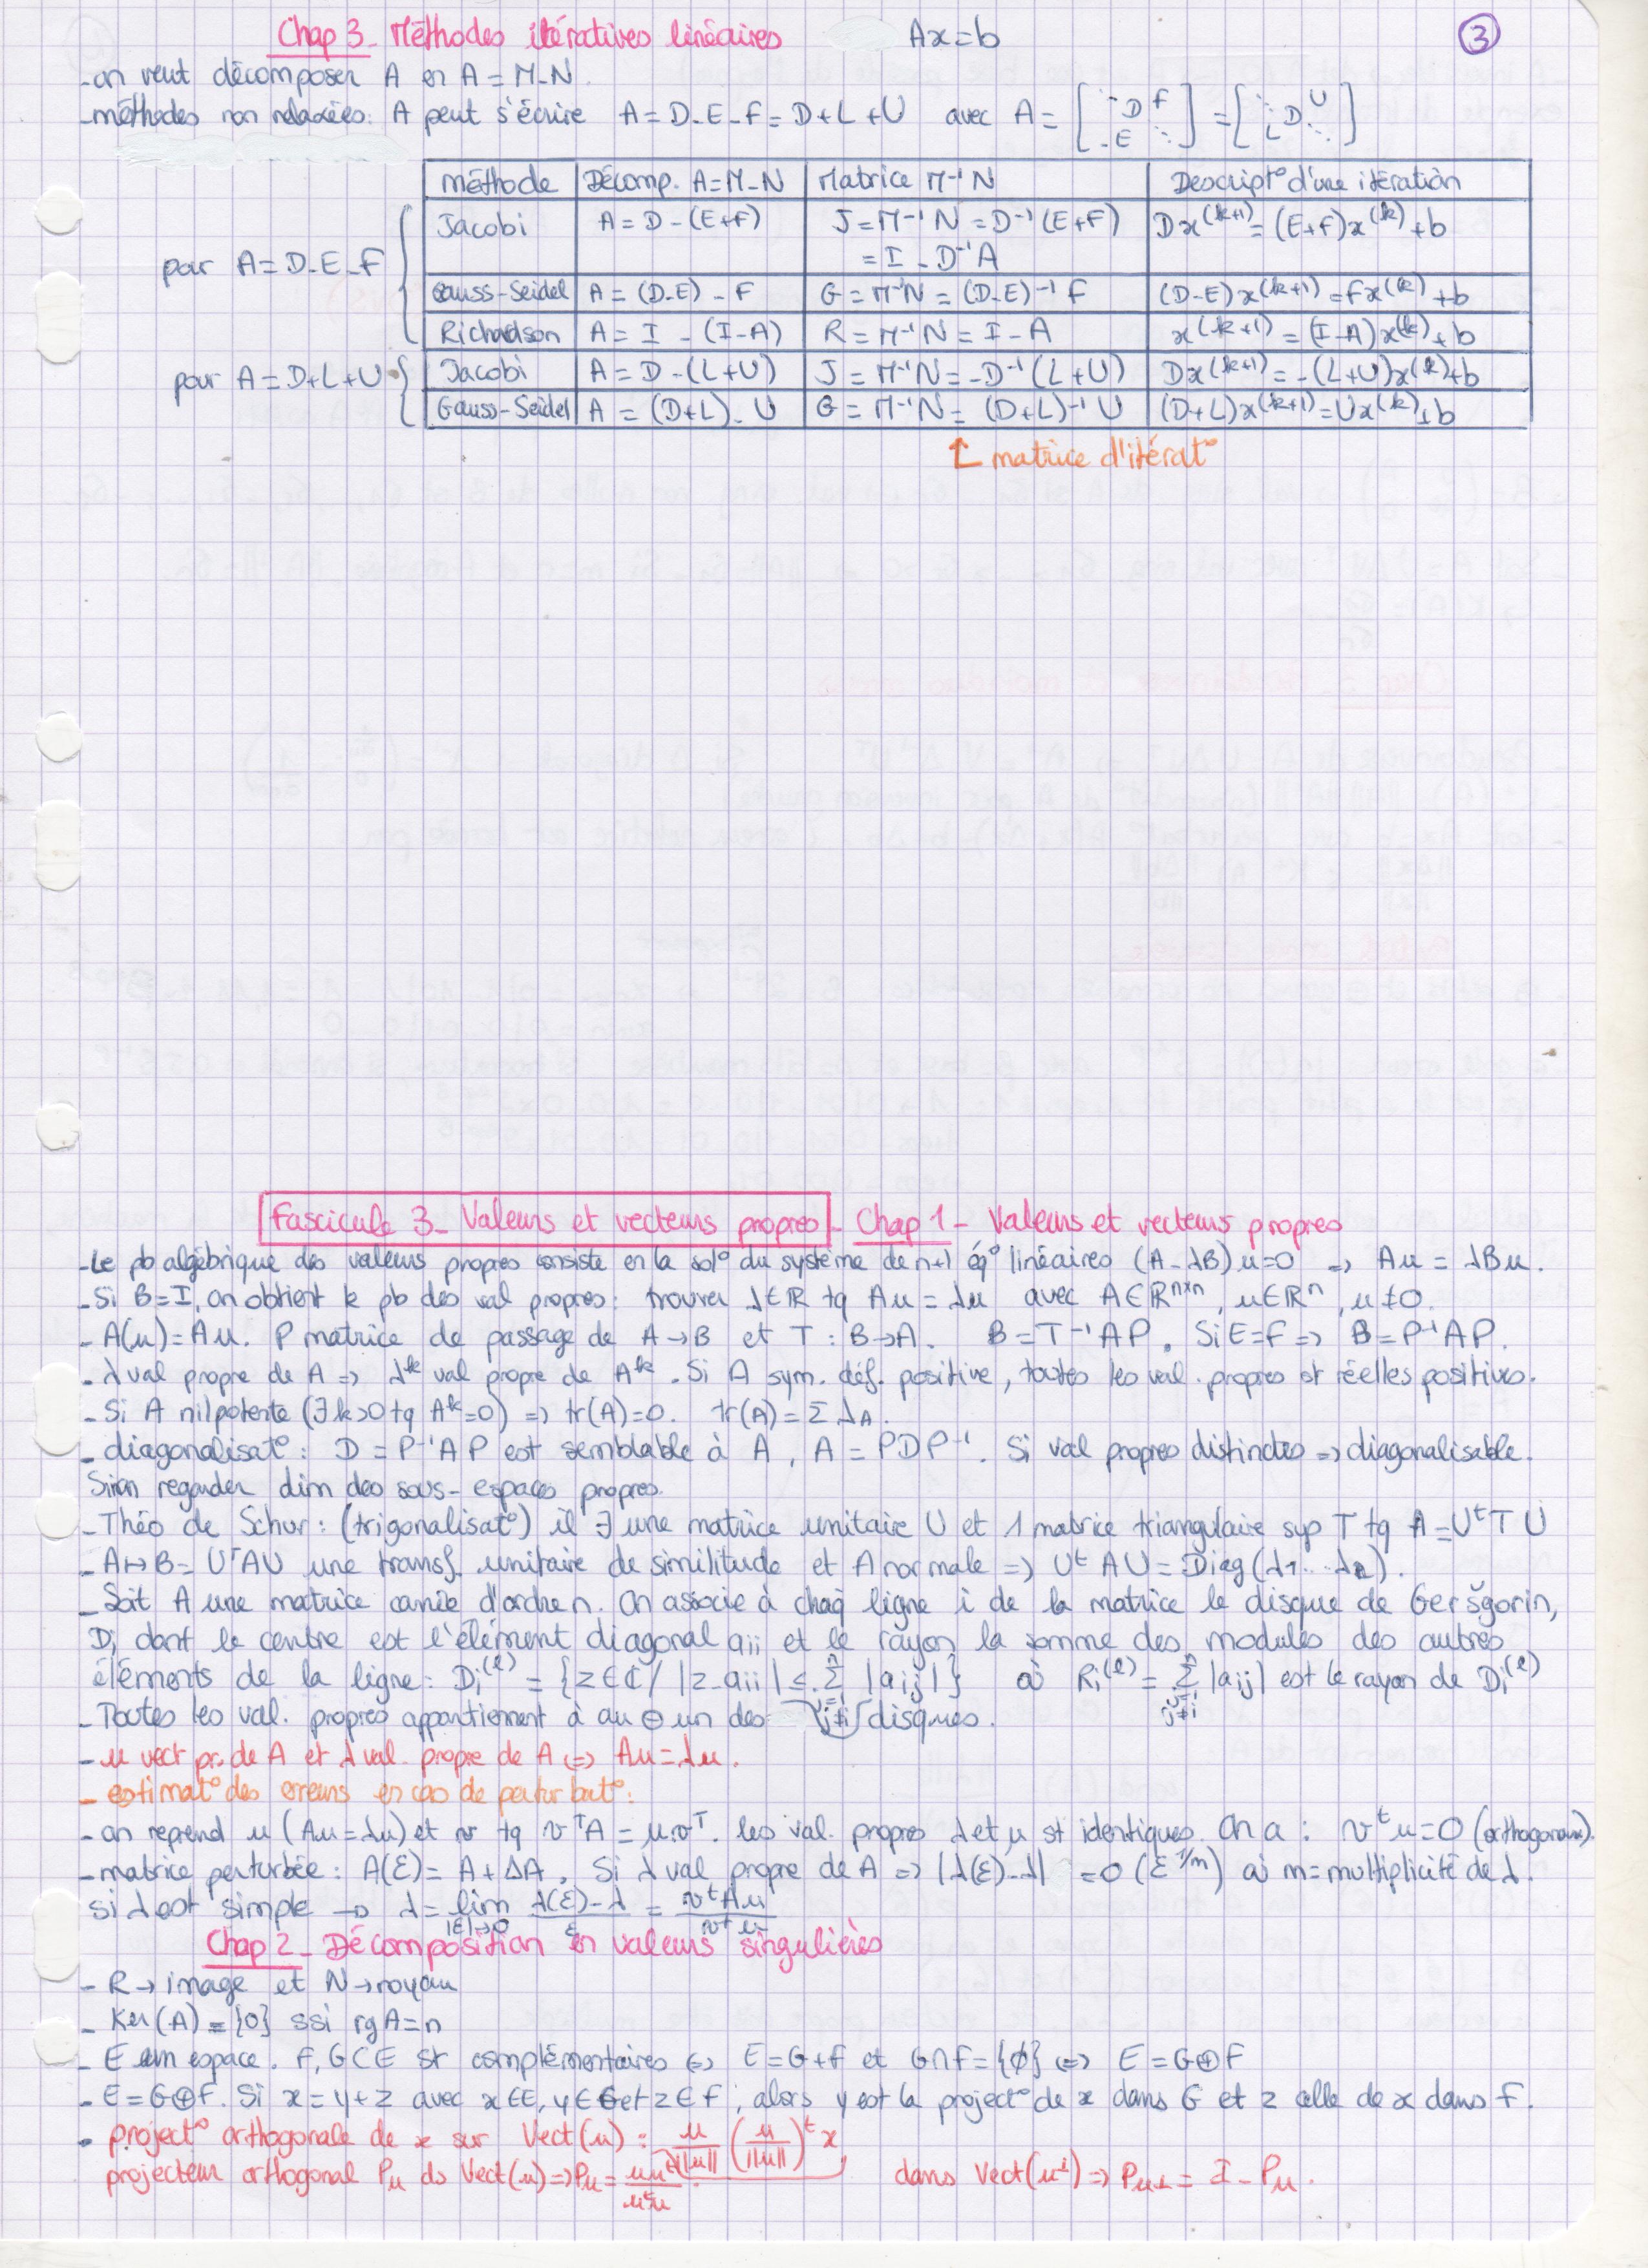 Chap 3 - Méthodes itératives linéaires Ax=b ③
- on veut décomposer A en A = M-N.
- méthodes non relaxées : A peut s'écrire A = D-E-F = D+L+U avec A = [⋱ D F -E ⋱] = [⋱ D U L ⋱]
méthode | Décomp. A=M-N | Matrice M⁻¹N | Descript° d'une itération
pour A=D-E-F
Jacobi | A = D-(E+F) | J = M⁻¹N = D⁻¹(E+F) | Dx^(k+1) = (E+F)x^(k) + b
= I - D⁻¹A
Gauss-Seidel | A = (D-E) - F | G = M⁻¹N = (D-E)⁻¹F | (D-E)x^(k+1) = Fx^(k) + b
Richardson | A = I - (I-A) | R = M⁻¹N = I - A | x^(k+1) = (I-A)x^(k) + b
pour A=D+L+U
Jacobi | A = D-(L+U) | J = M⁻¹N = -D⁻¹(L+U) | Dx^(k+1) = -(L+U)x^(k) + b
Gauss-Seidel | A = (D+L) - U | G = M⁻¹N = (D+L)⁻¹U | (D+L)x^(k+1) = Ux^(k) + b
↑ matrice d'itérat°
Fascicule 3 - Valeurs et vecteurs propres - Chap 1 - Valeurs et vecteurs propres
- Le pb algébrique des valeurs propres consiste en la sol° du système de n+1 éq° linéaires (A-λB)u=0 => Au = λBu.
- Si B=I, on obtient le pb des val propres : trouver λ∈ℝ tq Au = λu avec A∈ℝⁿˣⁿ, u∈ℝⁿ, u≠0.
- A(u)=Au. P matrice de passage de A→B et T : B→A. B=T⁻¹AP. Si E=F => B=P⁻¹AP.
- λ val propre de A => λᵏ val propre de Aᵏ. Si A sym. déf. positive, toutes les val. propres st réelles positives.
- Si A nilpotente (∃k>0 tq Aᵏ=0) => tr(A)=0. tr(A) = Σ λA.
- diagonalisat° : D = P⁻¹AP est semblable à A, A = PDP⁻¹. Si val propres distinctes => diagonalisable.
Sinon regarder dim des sous-espaces propres.
- Théo de Schur : (trigonalisat°) il ∃ une matrice unitaire U et 1 matrice triangulaire sup T tq A=UᵗTU
- A↦B= UᵀAU une transf. unitaire de similitude et A normale => UᵗAU = Diag(λ1...λn).
- Soit A une matrice carrée d'ordre n. On associe à chaq ligne i de la matrice le disque de Geršgorin,
Di dont le centre est l'élément diagonal aii et le rayon la somme des modules des autres
éléments de la ligne : Di^(l) = {z∈ℂ / |z-aii| ≤ Σ(j=1, j≠i)^n |aij|} où Ri^(l) = Σ(j=1, j≠i)^n |aij| est le rayon de Di^(l)
- Toutes les val. propres appartiennent à au ⊖ un des disques.
- u vect pr. de A et λ val. propre de A <=> Au=λu.
- estimat° des erreurs en cas de perturbat° :
- on reprend u (Au=λu) et v tq vᵀA = μvᵀ. les val. propres λ et μ st identiques. On a : vᵗu=0 (orthogonaux).
- matrice perturbée : A(ε) = A + ΔA. Si λ val propre de A => |λ(ε)-λ| = O(ε^1/m) où m=multiplicité de λ.
si λ est simple → λ = lim |ε|→0 (λ(ε)-λ)/ε = vᵗAu / vᵗu
Chap 2 - Décomposition en valeurs singulières
- R→image et N→noyau
- Ker(A) = {0} ssi rgA=n
- E un espace. F,G⊂E st complémentaires <=> E=G+F et G∩F={∅} <=> E = G⊕F
- E=G⊕F. Si x = y+z avec x∈E, y∈G et z∈F, alors y est la project° de x dans G et z celle de x dans F.
- project° orthogonale de x sur Vect(u) : u/||u|| (u/||u||)ᵗ x
projecteur orthogonal Pu ds Vect(u) => Pu = uuᵗ/uᵗu. dans Vect(u⊥) => Pu⊥ = I - Pu.